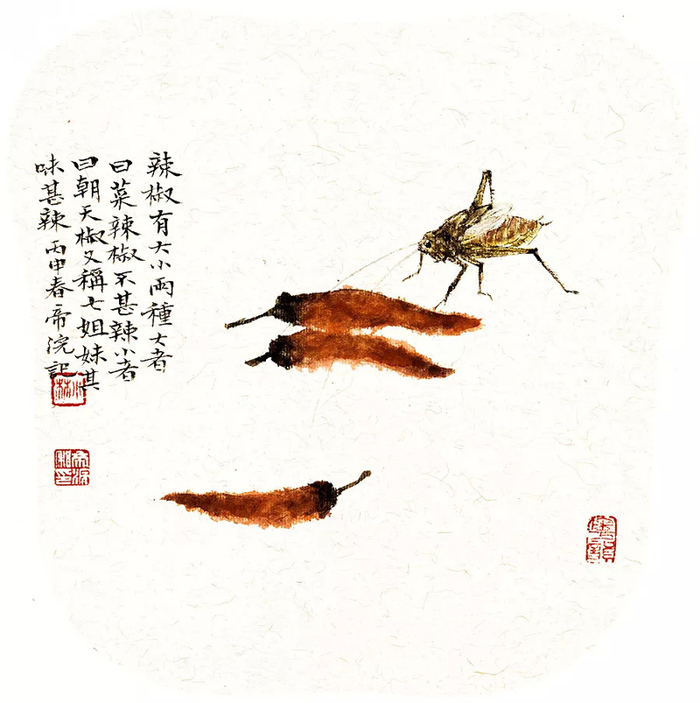 辣椒有大小兩種大者
曰菜辣椒不甚辣小者
曰朝天椒又稱七姐妹其
味甚辣丙申春帝浣記